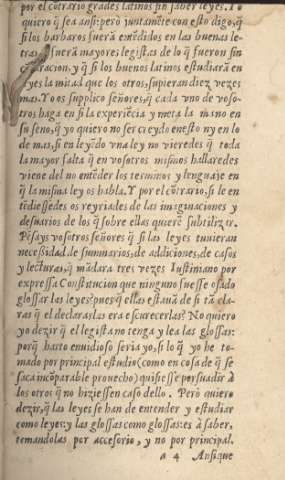 por el cõtrario grades latinos sin saber leyes. Yo
quiero q̃ sea ansi: però juntamẽte con esto digo, q̃
si los barbaros fuerã erudidos en las buenas le-
tras, fuerã mayores legistas de lo q̃ fueron sin
cõparacion, y q̃ si los buenos latinos estudiarã en
leyes la mitad que los otros, supieran diez vezes
mas. Yo os supplico señores, q̃ cada vno de voso-
tros haga en si la experiẽcia y meta la mano en
su seno, q̃ yo quiero no ser creydo en esto ny en lo
de mas, si en leyẽdo vna ley no vieredes q̃ toda
la mayor falta q̃ en vosotros mismos hallaredes
viene del no entẽder los terminos y lenguaje en
q̃ la misma ley os habla. Y por el cõtrario, si le en
tẽdiessedes os reyriades de las imaginaciones y
desuarios de los q̃ sobre ellas quierẽ subtilizar.
Pẽsays vosotros señores q̃ si las leyes tuuieran
necessidad de summarios, de addiciones, de casos
y lecturas, q̃ mãdara tres vezes Iustiniano por
expressa Constitucion que ninguno fuesse osado
glossar las leyes? pues q̃ ellas estauã de si tã cla-
ras q̃ el declararlas era escurecerlas? No quiero
yo dezir q̃ el legista no tenga y lea las glossas:
porq̃ harto envidioso seria yo, si lo q̃ yo he to-
mado por principal estudio (como en cosa de q̃ se
saca incõparable prouecho) quisiesse persuadir à
los otros q̃ no hiziessen caso dello. Però quiero
dezir, q̃ las leyes se han de entender y estudiar
como leyes: y las glossas como glossas: es à saber,
tomandolas por accesorio, y no por principal.
a 4 Ansi que